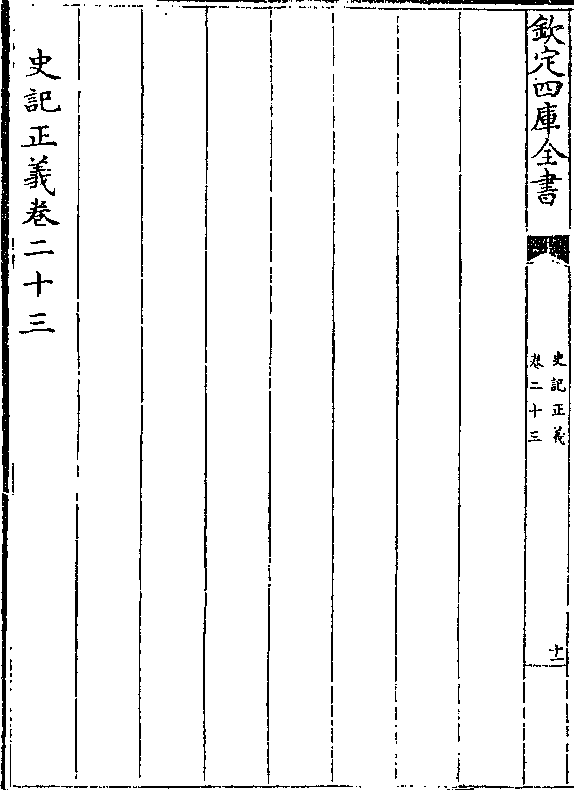 欽定四庫全書
史記正義
卷二十三
十一
史記正義卷二十三